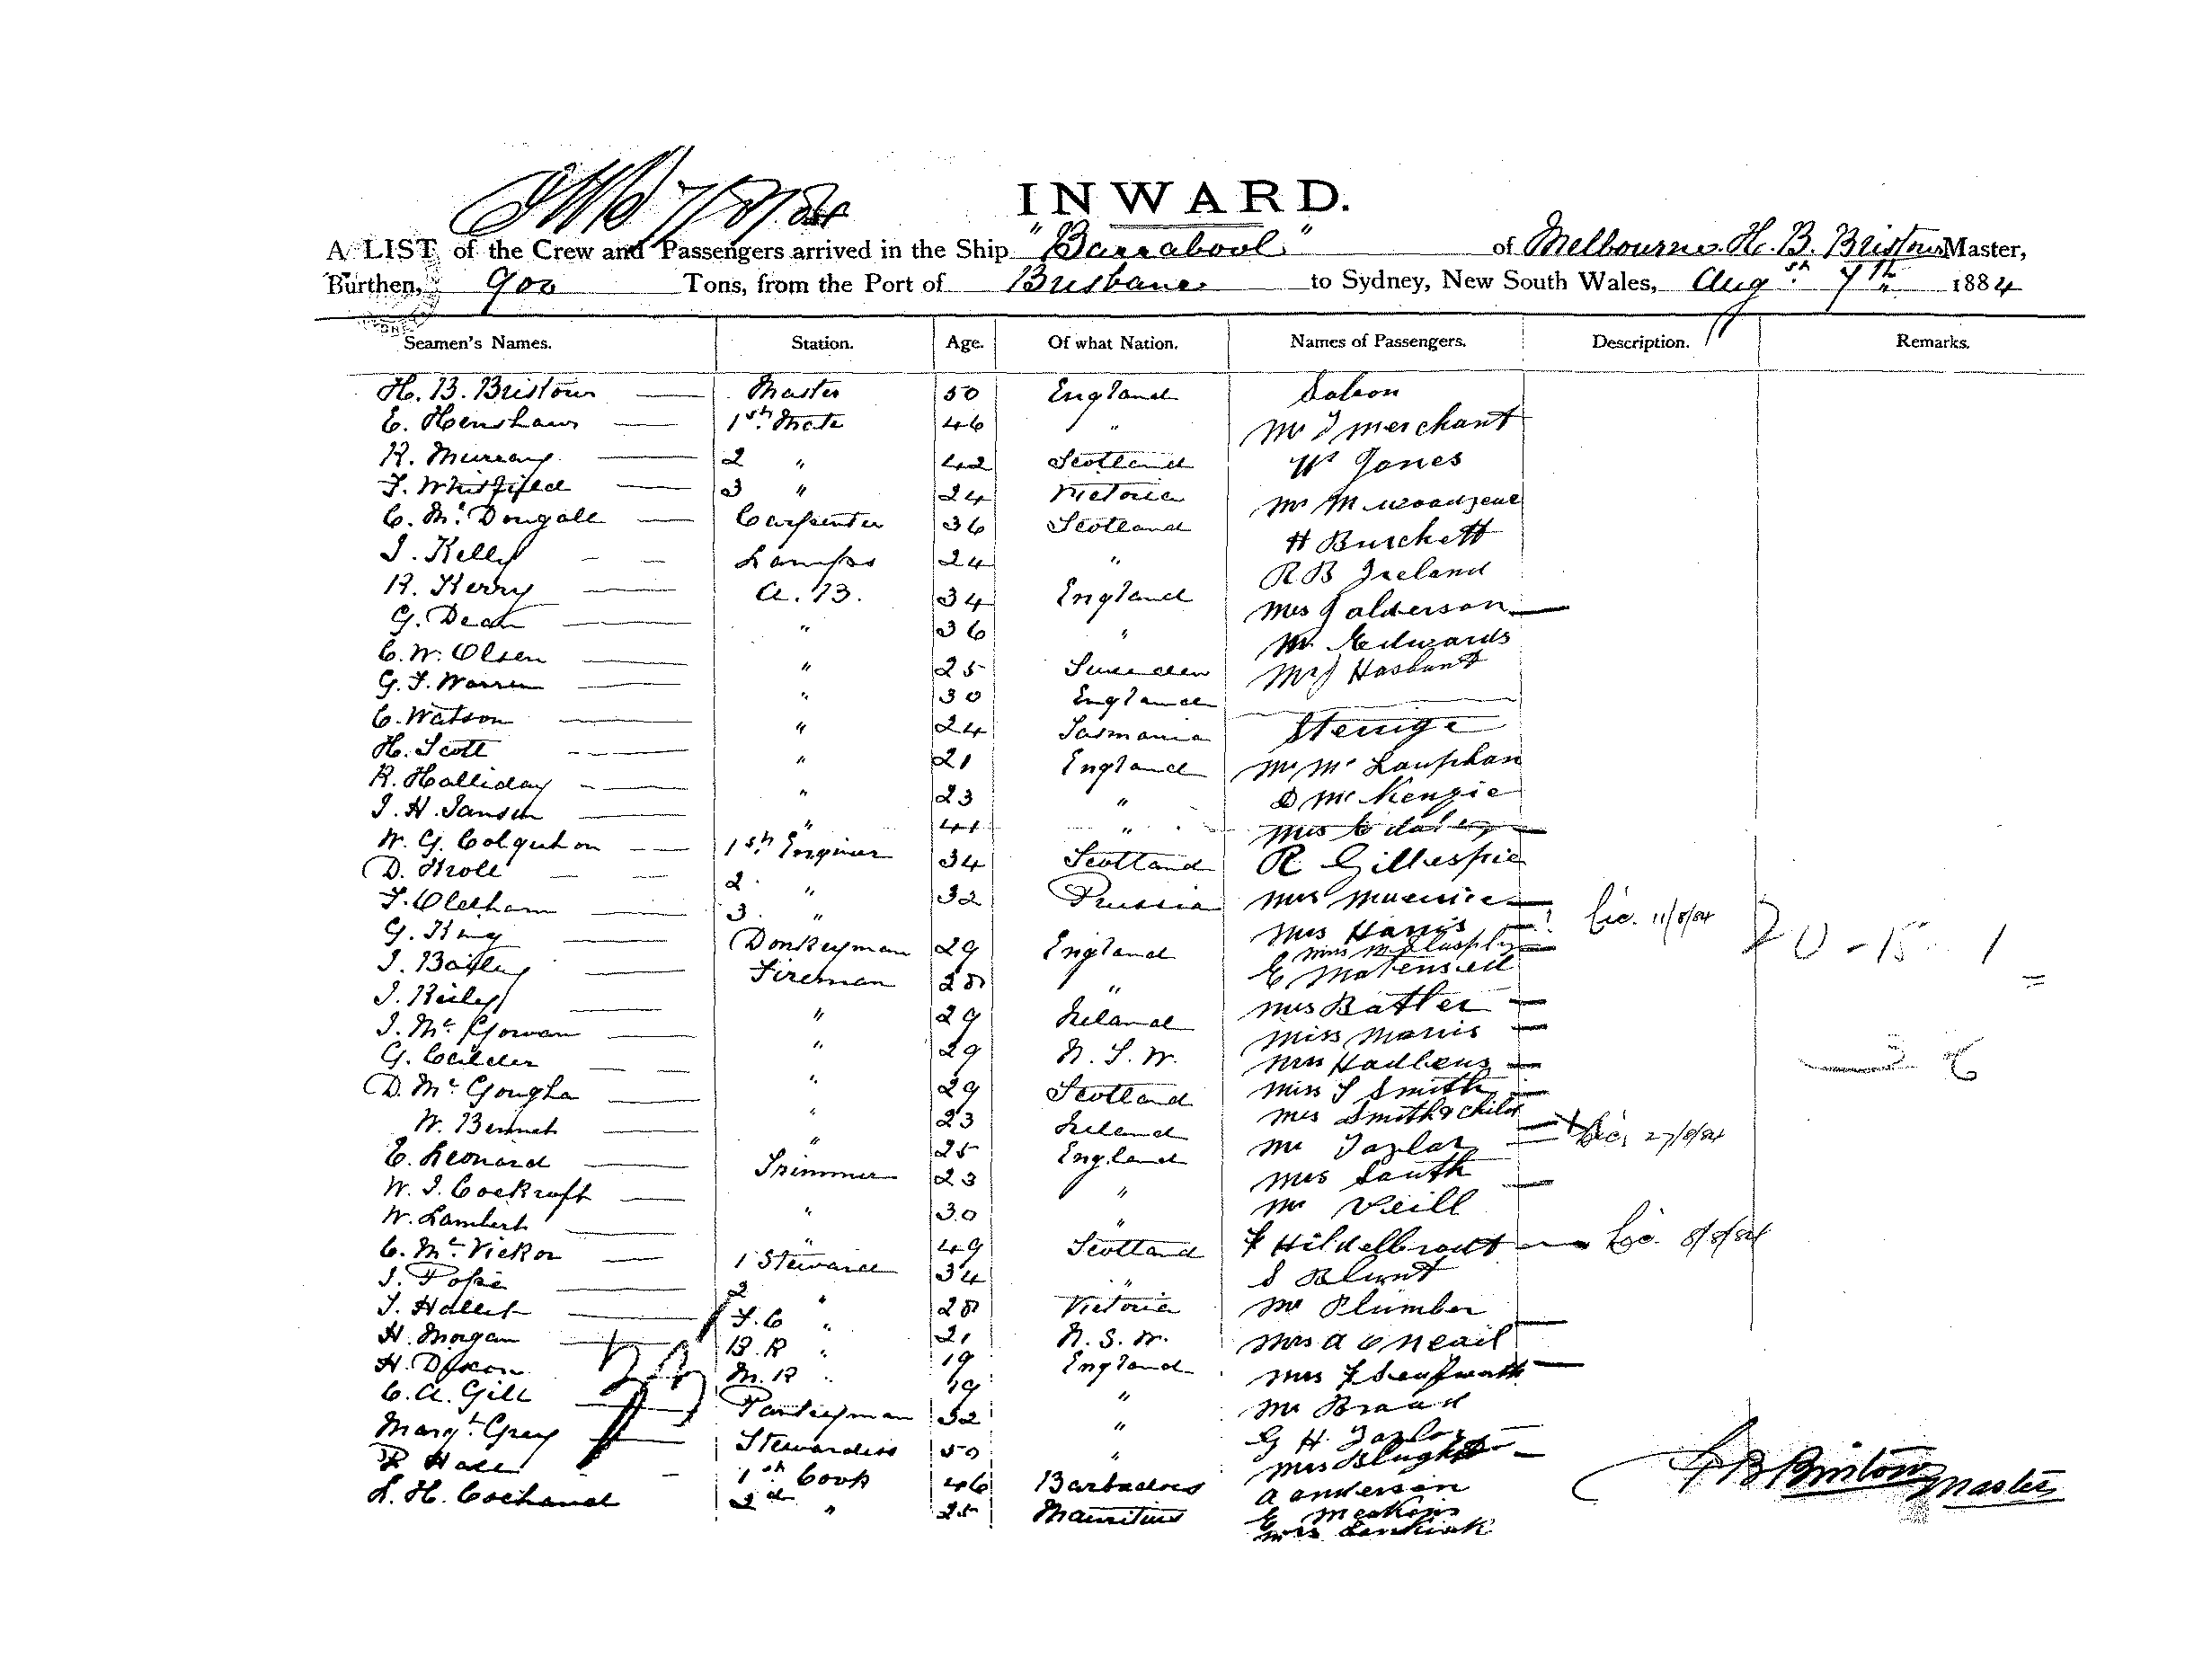 INWARD.
A LIST of the Crew and Passengers arrived in the Ship "Barrabool" of Melbourne H. B. Bristow Master,
Burthen, 900 Tons, from the Port of Brisbane to Sydney, New South Wales, Augst. 7th 1884
Seamen's Names. Station. Age. Of what Nation. Names of Passengers. Description. Remarks.
H. B. Bristow Master 50 England Saloon
E. Henshaw 1st. Mate 46 " Mr J Merchant
R. Murray 2 " 42 Scotland Jones
F. Whitfield 3 " 24 Victoria Mr M
C. Mc. Dougall Carpenter 36 Scotland H Burchett
J. Kelly Lamps 24 " R B Ireland
R. Kerry A. B. 34 England Mrs J alderson
G. Dean " 36 " Mr Edwards
C. W. Olsen " 25 Sweeden
G. F. Warren " 30 England
C. Watson " 24 Tasmania Sterrige
H. Scott " 21 England Mr Mc
R. Halliday " 23 " D Mc Kenzie
J. H. Jansen " 41 " Mrs
W. G. Colquhon 1st. Engineer 34 Scotland R. Gillespie
D. 2. " 32 Prussia Mrs
F. Oldham 3. " Mrs Harris Cic. 11/8/84 20-15 1
G. King Donkeyman 29 England Miss
J. Bailey Fireman 28 " E
J. Riley " 29 Ireland Mrs Batler
J. Mc. Gowan " 29 N. S. W. Miss Morris
G. Calder " 29 Scotland Mrs 3 6
D. Mc. Gougha " 23 Ireland Miss S Smith
W. Bennet " 25 England Mrs Smith & child
E. Leonard Trimmer 23 " Mr Taylor 27/8/84
W. J. Cockroft " 30 " Mrs South
W. Lambert " 49 Scotland Mr Veill
C. Mc. Vickor 1 Steward 34 " F Hildelbradt Cic. 8/8/84
J. Pope 2 " 28 Victoria S Blunt
J. Hallet F. C " 21 N. S. W. Mr Plumber
H. Morgan B. R " 19 England Mrs A O Neail
H. Dixon M. R " 19 " Mrs F
C. A. Gill Pantryman 32 " Mr Braad
Margt. Grey Stewardess 50 " G H Taylor
P Hall 1st Cook 46 Barbadoes Mrs
L. H. 2d " 25 Mauritius A anderson
E Meakins
Mrs
H B Bristow Master